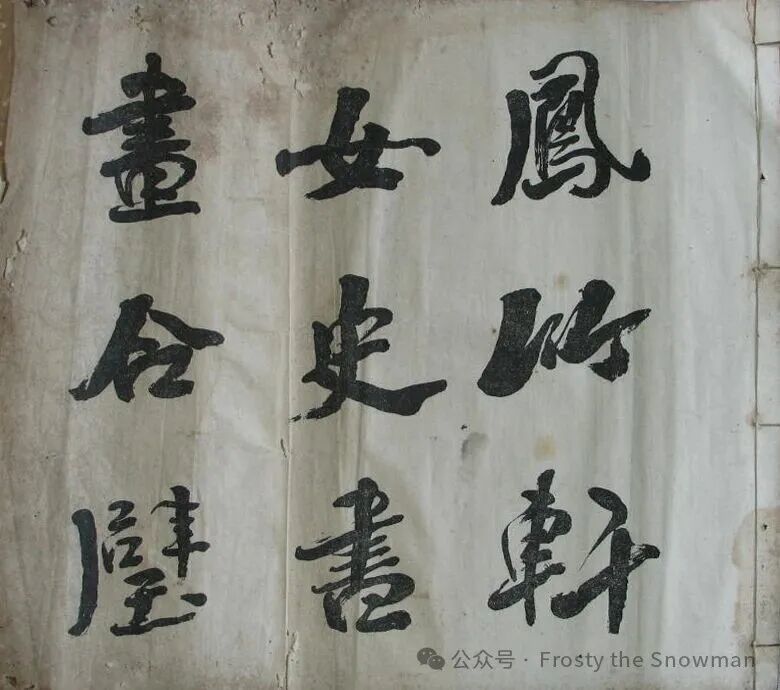 鳳竹軒
女史書
畫合璧
公众号 · Frosty the Snowman